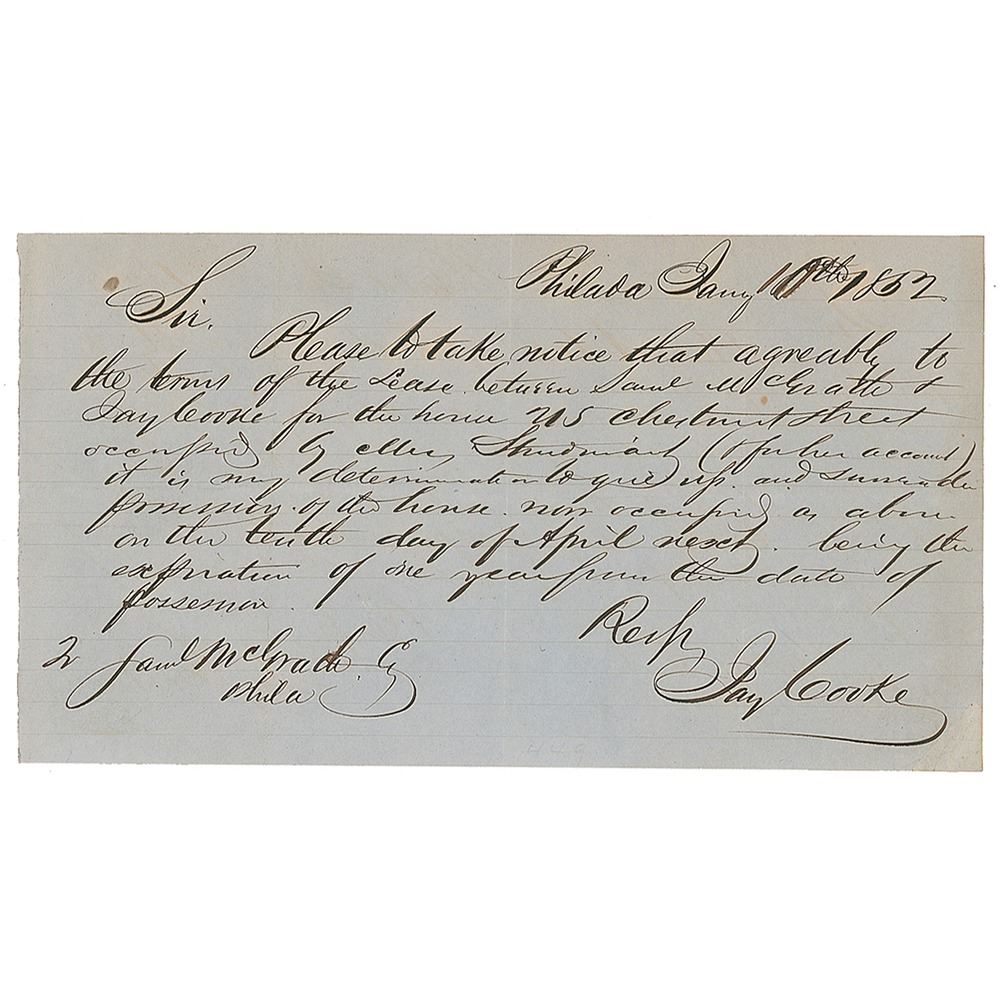 Philada Jany 10th 1852
Sir.
Please to take notice that agreably to
the terms of the Lease between Saml McGrath &
Jay Cooke for the house 215 Chestnut street
occupied by (& for her account)
it is my determination to give up and surrender
possession of the house now occupied as above
on the tenth day of April next. being the
expiration of one year from the date of
possession.
Resp
Saml McGrath Eq
Phila
Jay Cooke